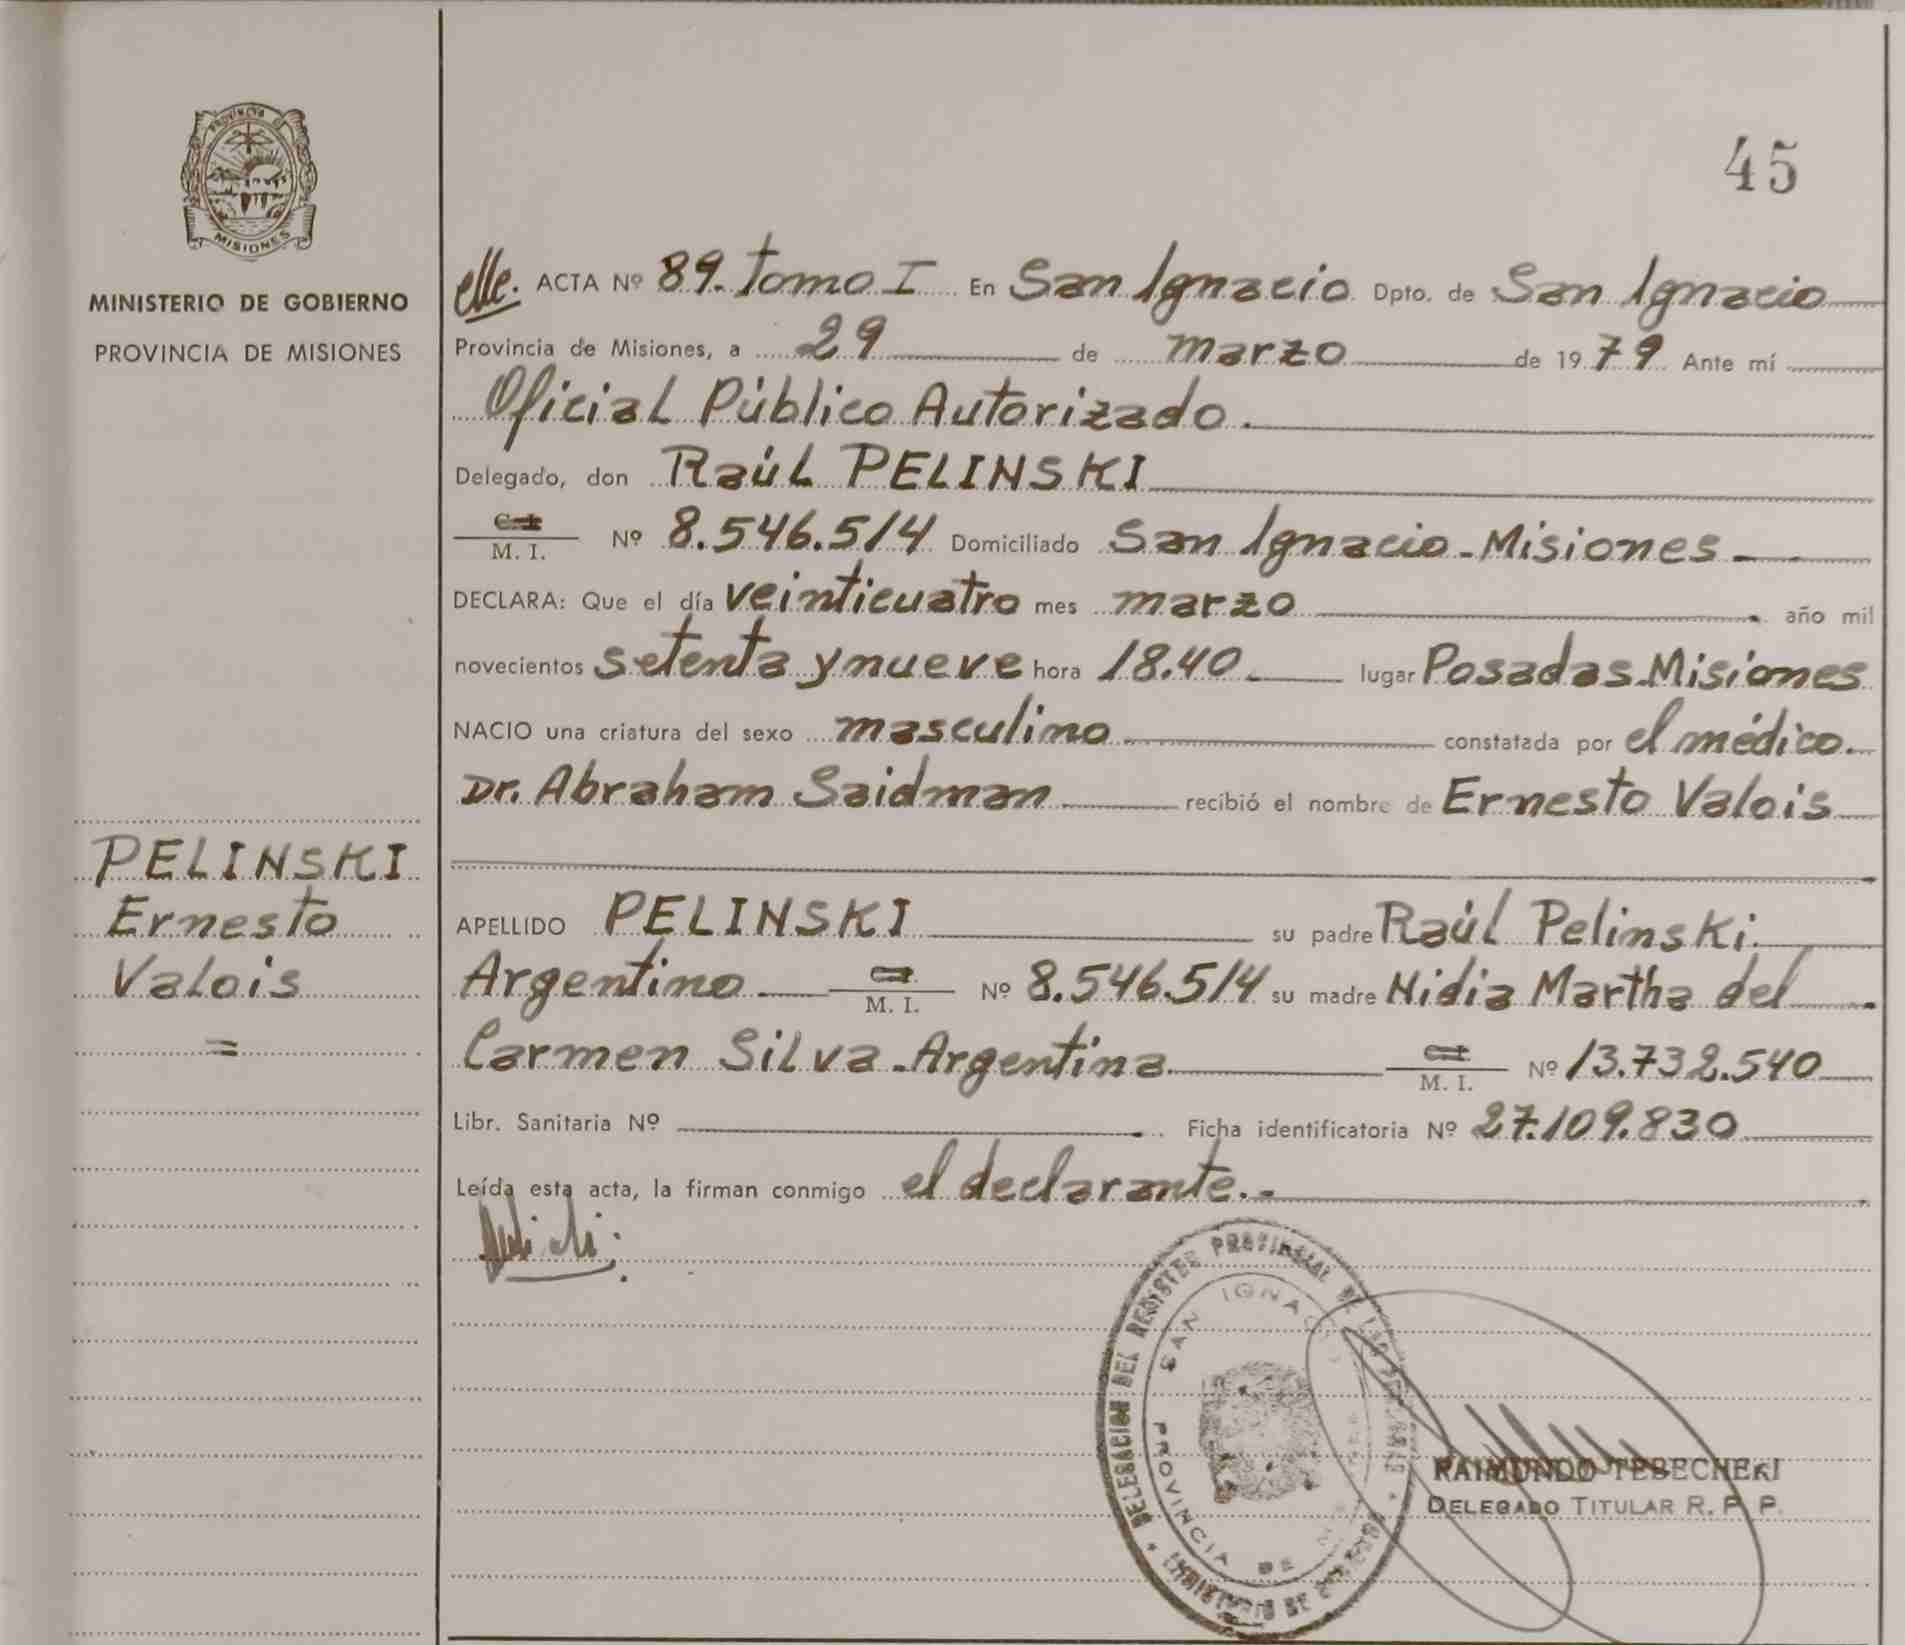 PROVINCIA D
MISIONES
MINISTERIO DE GOBIERNO
PROVINCIA DE MISIONES
PELINSKI
Ernesto
Valois
=
45
ACTA Nº 89. Tomo I En San Ignacio Dpto. de San Ignacio
Provincia de Misiones, a 29 de marzo de 1979 Ante mí
Oficial Público Autorizado.
Delegado, don Raúl PELINSKI
C. I.
M. I. Nº 8.546.514 Domiciliado San Ignacio - Misiones
DECLARA: Que el día veinticuatro mes marzo año mil
novecientos setenta y nueve hora 18.40 lugar Posadas-Misiones
NACIO una criatura del sexo masculino constatada por el médico.
Dr. Abraham Saidman recibió el nombre de Ernesto Valois
APELLIDO PELINSKI su padre Raúl Pelinski.
Argentino M. I. Nº 8.546.514 su madre Nidia Martha del
Carmen Silva-Argentina M. I. Nº 13.732.540
Libr. Sanitaria Nº Ficha identificatoria Nº 27.109.830
Leída esta acta, la firman conmigo el declarante.-
DELEGACION DEL REGISTRO PROVINCIAL DE LAS PERSONAS
SAN IGNACIO
PROVINCIA DE
MINISTERIO DE GOBIERNO
RAIMUNDO TEBECHERI
DELEGADO TITULAR R. P. P.